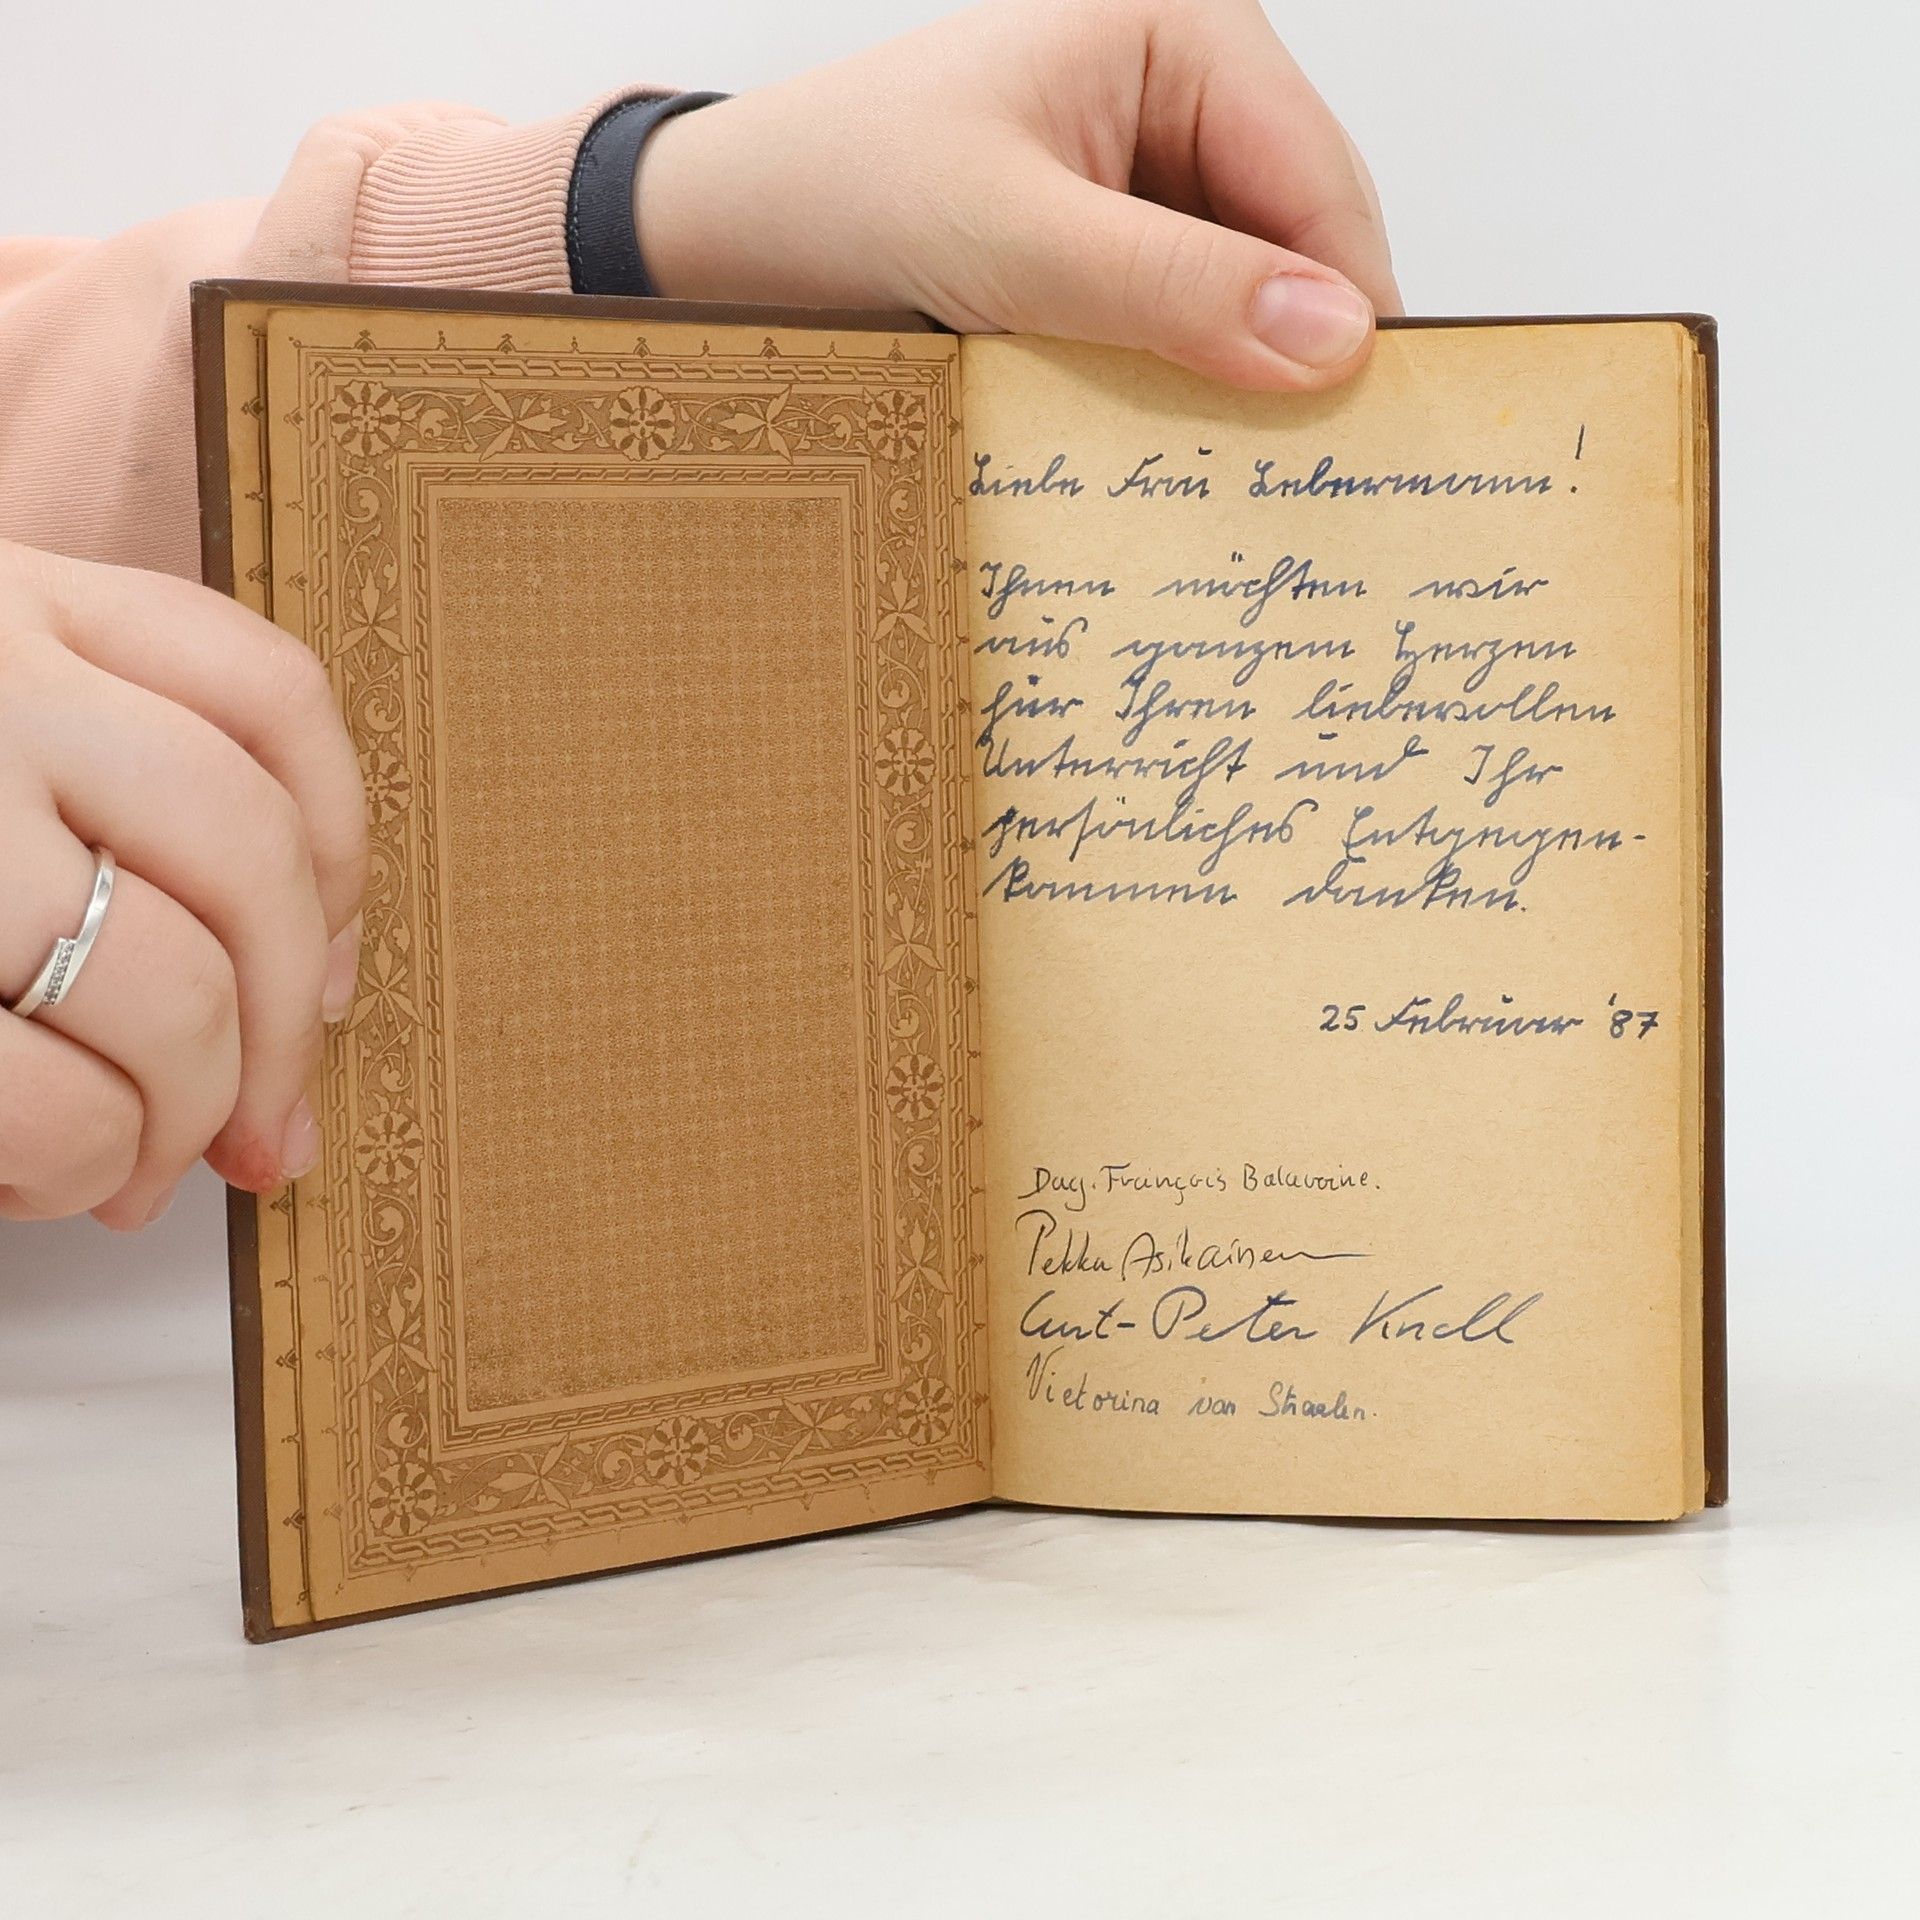 Liebe Frau Lebermann!
Ihnen möchten wir
aus ganzem Herzen
für Ihren liebevollen
Unterricht und Ihr
persönliches Entgegen-
kommen danken.
25 Februar '87
Dag. François Balavoine.
Pekka Asikainen
Curt-Peter Knoll
Victorina van